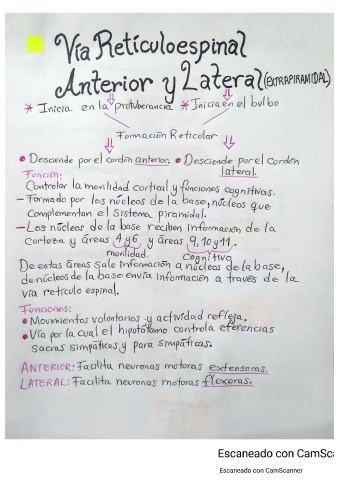 Vía Retículoespinal
Anterior y Lateral (EXTRAPIRAMIDAL)
* Inicia en la protuberancia * Inicia en el bulbo
Formación Reticular
• Desciende por el cordón anterior. • Desciende por el cordón
lateral.
Función:
Controlar la movilidad cortical y funciones cognitivas.
- Formado por los núcleos de la base, núcleos que
complementan el sistema piramidal.
- Los núcleos de la base reciben información de la
corteza y áreas 4 y 6 y áreas 9, 10 y 11.
movilidad. Cognitivo
De estas áreas sale información a núcleos de la base,
de núcleos de la base envía información a través de la
vía retículo espinal.
Funciones:
• Movimientos voluntarios y actividad refleja.
• Vía por la cual el hipotálamo controla eferencias
sacras simpáticas y para simpáticas.
ANTERIOR: Facilita neuronas motoras extensoras.
LATERAL: Facilita neuronas motoras flexoras.
Escaneado con CamSca
Escaneado con CamScanner